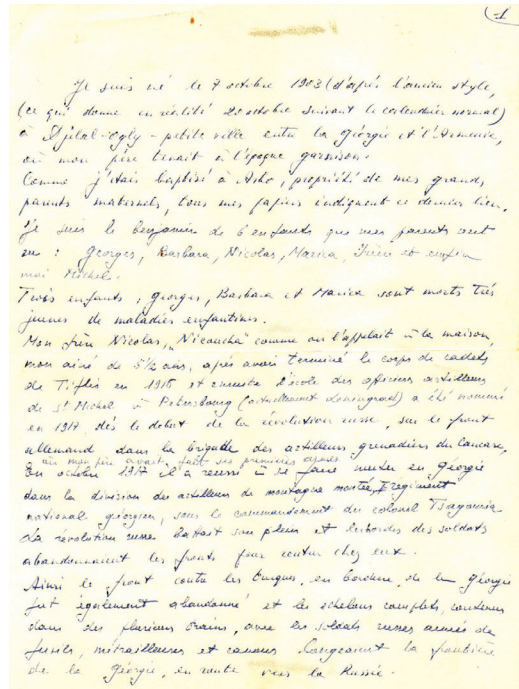 -1-
Je suis né le 7 octobre 1903 (d'après l'ancien style,
(ce qui donne en réalité 20 octobre suivant le calendrier normal)
à Djelal-Ogly - petite ville entre la Géorgie et l'Arménie,
où mon père tenait à l'époque garnison.
Comme j'étais baptisé à Asho, propriété de mes grands
parents maternels, tous mes papiers indiquent ce dernier lieu.
Je suis le benjamin de 6 enfants que mes parents ont
eu : Georges, Barbara, Nicolas, Marica, Irène et enfin
moi Michel.
Trois enfants : Georges, Barbara et Marica sont morts très
jeunes de maladies enfantines.
Mon frère Nicolas, "Nicoucha" comme on l'appelait à la maison,
mon aîné de 5½ ans, après avoir terminé le corps de cadets
de Tiflis en 1915 et ensuite l'école des officiers artilleurs
de St Michel à Petersbourg (actuellement Leningrad) a été nommé
en 1917, dès le début de la révolution russe, sur le front
allemand dans la brigade des artilleurs grenadiers du Caucase,
où mon père avait fait ses premières armes
En octobre 1917 il a réussi à se faire muter en Géorgie
dans la division des artilleurs de montagne montée, I regiment
national géorgien, sous le commandement du colonel
La révolution russe battait son plein et les hordes des soldats
abandonnaient les fronts pour rentrer chez eux.
Ainsi le front contre les Turques, en bordure de la Géorgie
fut également abandonné et les échelons complets, contenus
dans des plusieurs trains, avec les soldats russes armés de
fusils, mitrailleuses et canons longeaient la frontière
de la Géorgie, en route vers la Russie.